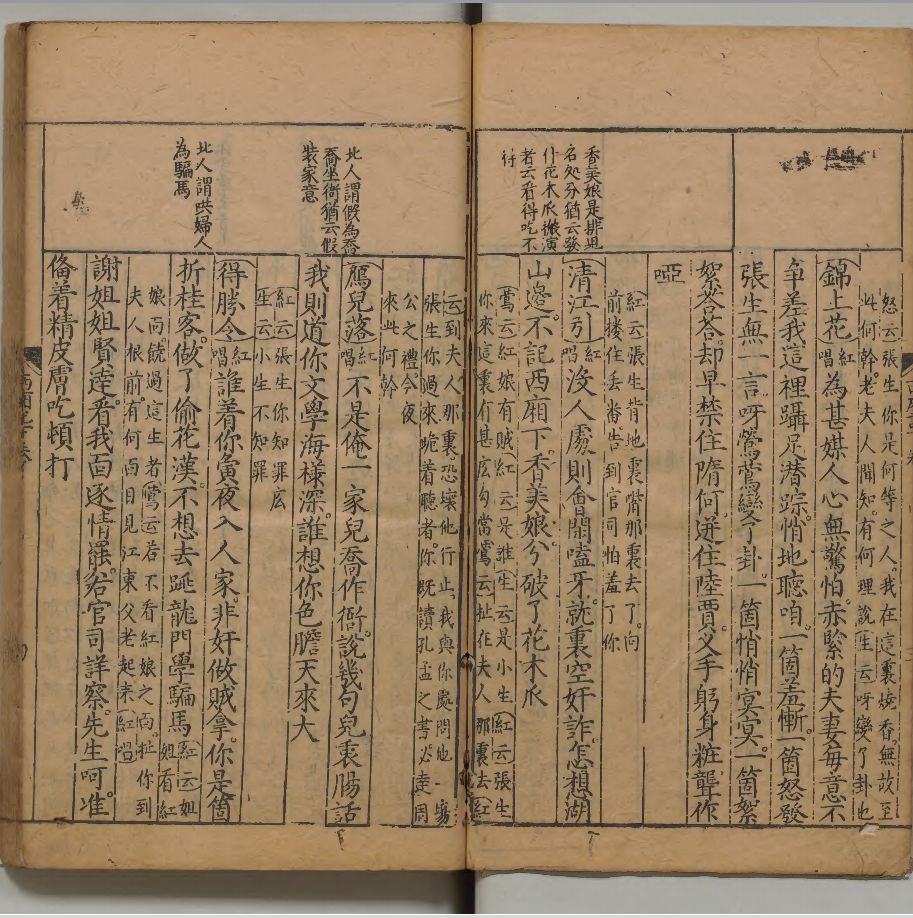 怒云張生你是何等之人我在這裏燒香無故至
此何幹老夫人聞知有何理說生云呀變了卦也
錦上花紅唱為甚媒人心無驚怕赤緊的夫妻每意不
爭差我這裡躡足潛踪悄地聽咱一箇羞慚一箇怒發
張生無一言呀鶯鶯變了卦一箇悄悄冥冥一箇絮
絮荅荅却早禁住隋何迸住陸賈叉手躬身粧聾作
啞
紅云張生背地裏嘴那裏去了向
前摟住丢番告到官司怕羞了你
清江引紅唱没人處則會閑嗑牙就裏空奸詐怎想湖
山邊不記西廂下香美娘兮破了花木瓜
鶯云紅娘有賊紅云是誰生云是小生紅云張生
你來這裏有甚庅勾當鶯云扯在夫人那裏去紅
香美娘是排
名処分猶云發
什花木瓜搬演
者云看得吃不
得
云到夫人那裏恐壞他行止我與你處問他一塲
張生你過來跪着聽者你既讀孔孟之書必達周
公之禮今夜
來此何幹
鴈兒落紅唱不是俺一家兒喬作衙說幾句兒衷腸話
我則道你文學海樣深誰想你色膽天來大
紅云張生你知罪庅
生云小生不知罪
得勝令紅唱誰着你夤夜入人家非奸做賊拿你是箇
折桂客做了偷花漢不想去跳龍門學騙馬紅云姐姐看紅
娘面饒過這生者鶯云若不看紅娘之面扯你到
夫人根前有何面目見江東父老起來紅唱
謝姐姐賢達看我面逐情罷若官司詳察先生呵准
俻着精皮膚吃頓打
北人謂假為喬
喬坐衙猶云假
裝家意
北人謂哄婦人
為騙馬